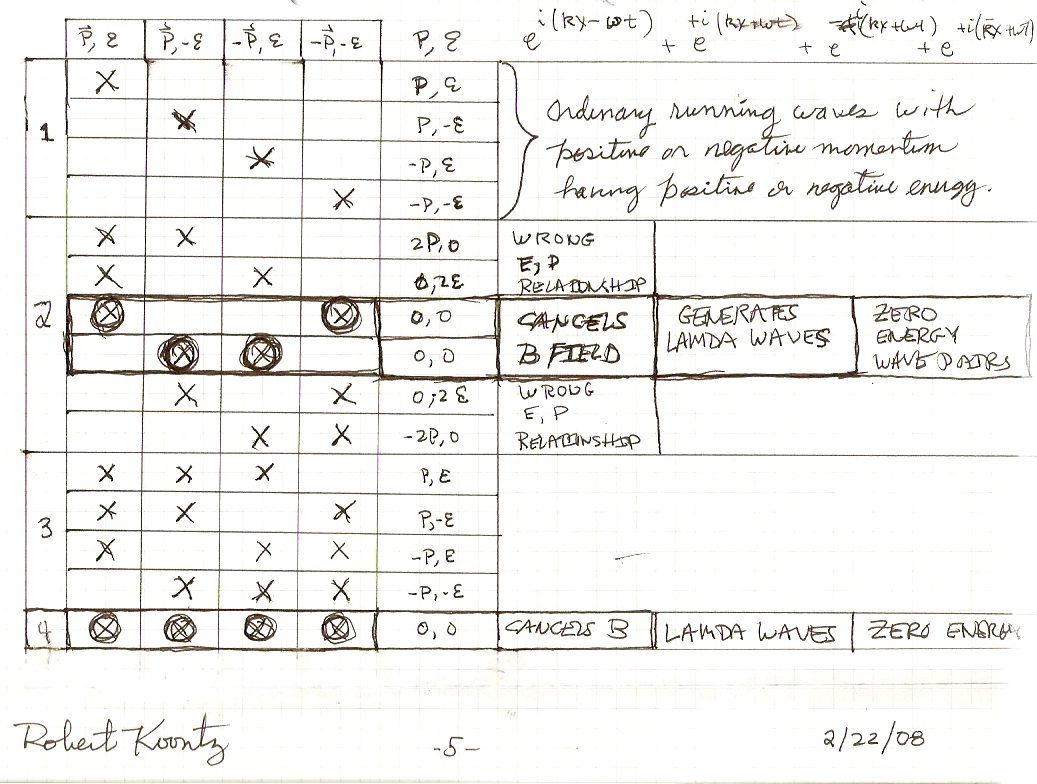 P⃗, ε P⃗, -ε -P⃗, ε -P⃗, -ε P, ε e^i(kx-ωt) + e^+i(kx+ωt) + e^i(kx+ωt) + e^+i(kx+ωt)
1
X P, ε
X P, -ε
X -P, ε
X -P, -ε
Ordinary running waves with
positive or negative momentum
having positive or negative energy.
2
X X 2P, 0
X X 0, 2ε
WRONG
E, P
RELATIONSHIP
⊗ ⊗ 0, 0
⊗ ⊗ 0, 0
CANCELS
B FIELD
GENERATES
LAMDA WAVES
ZERO
ENERGY
WAVE PAIRS
X X 0, -2ε
X X -2P, 0
WRONG
E, P
RELATIONSHIP
3
X X X P, E
X X X P, -ε
X X X -P, E
X X X -P, -ε
4 ⊗ ⊗ ⊗ ⊗ 0, 0 CANCELS B LAMDA WAVES ZERO ENERGY
Robert Koontz -5- 2/22/08